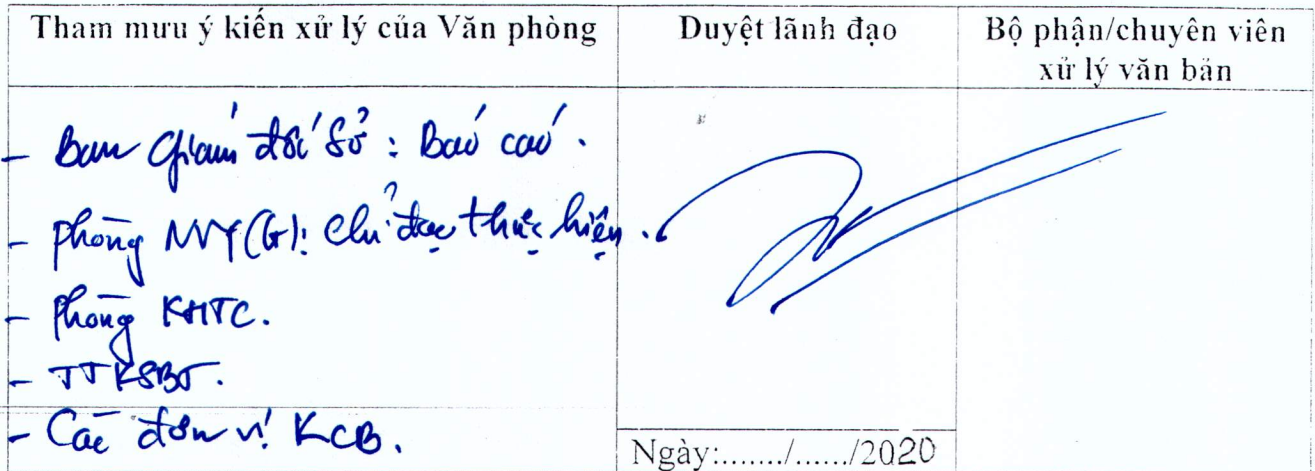 Tham mưu ý kiến xử lý của Văn phòng
Duyệt lãnh đạo
Bộ phận/chuyên viên
xử lý văn bản
- Ban Giám đốc Sở : Báo cáo .
- Phòng NVY(G): Chỉ đạo thực hiện .
- Phòng KHTC.
- TTKSBT.
- Các đơn vị KCB.
Ngày:......./....../2020